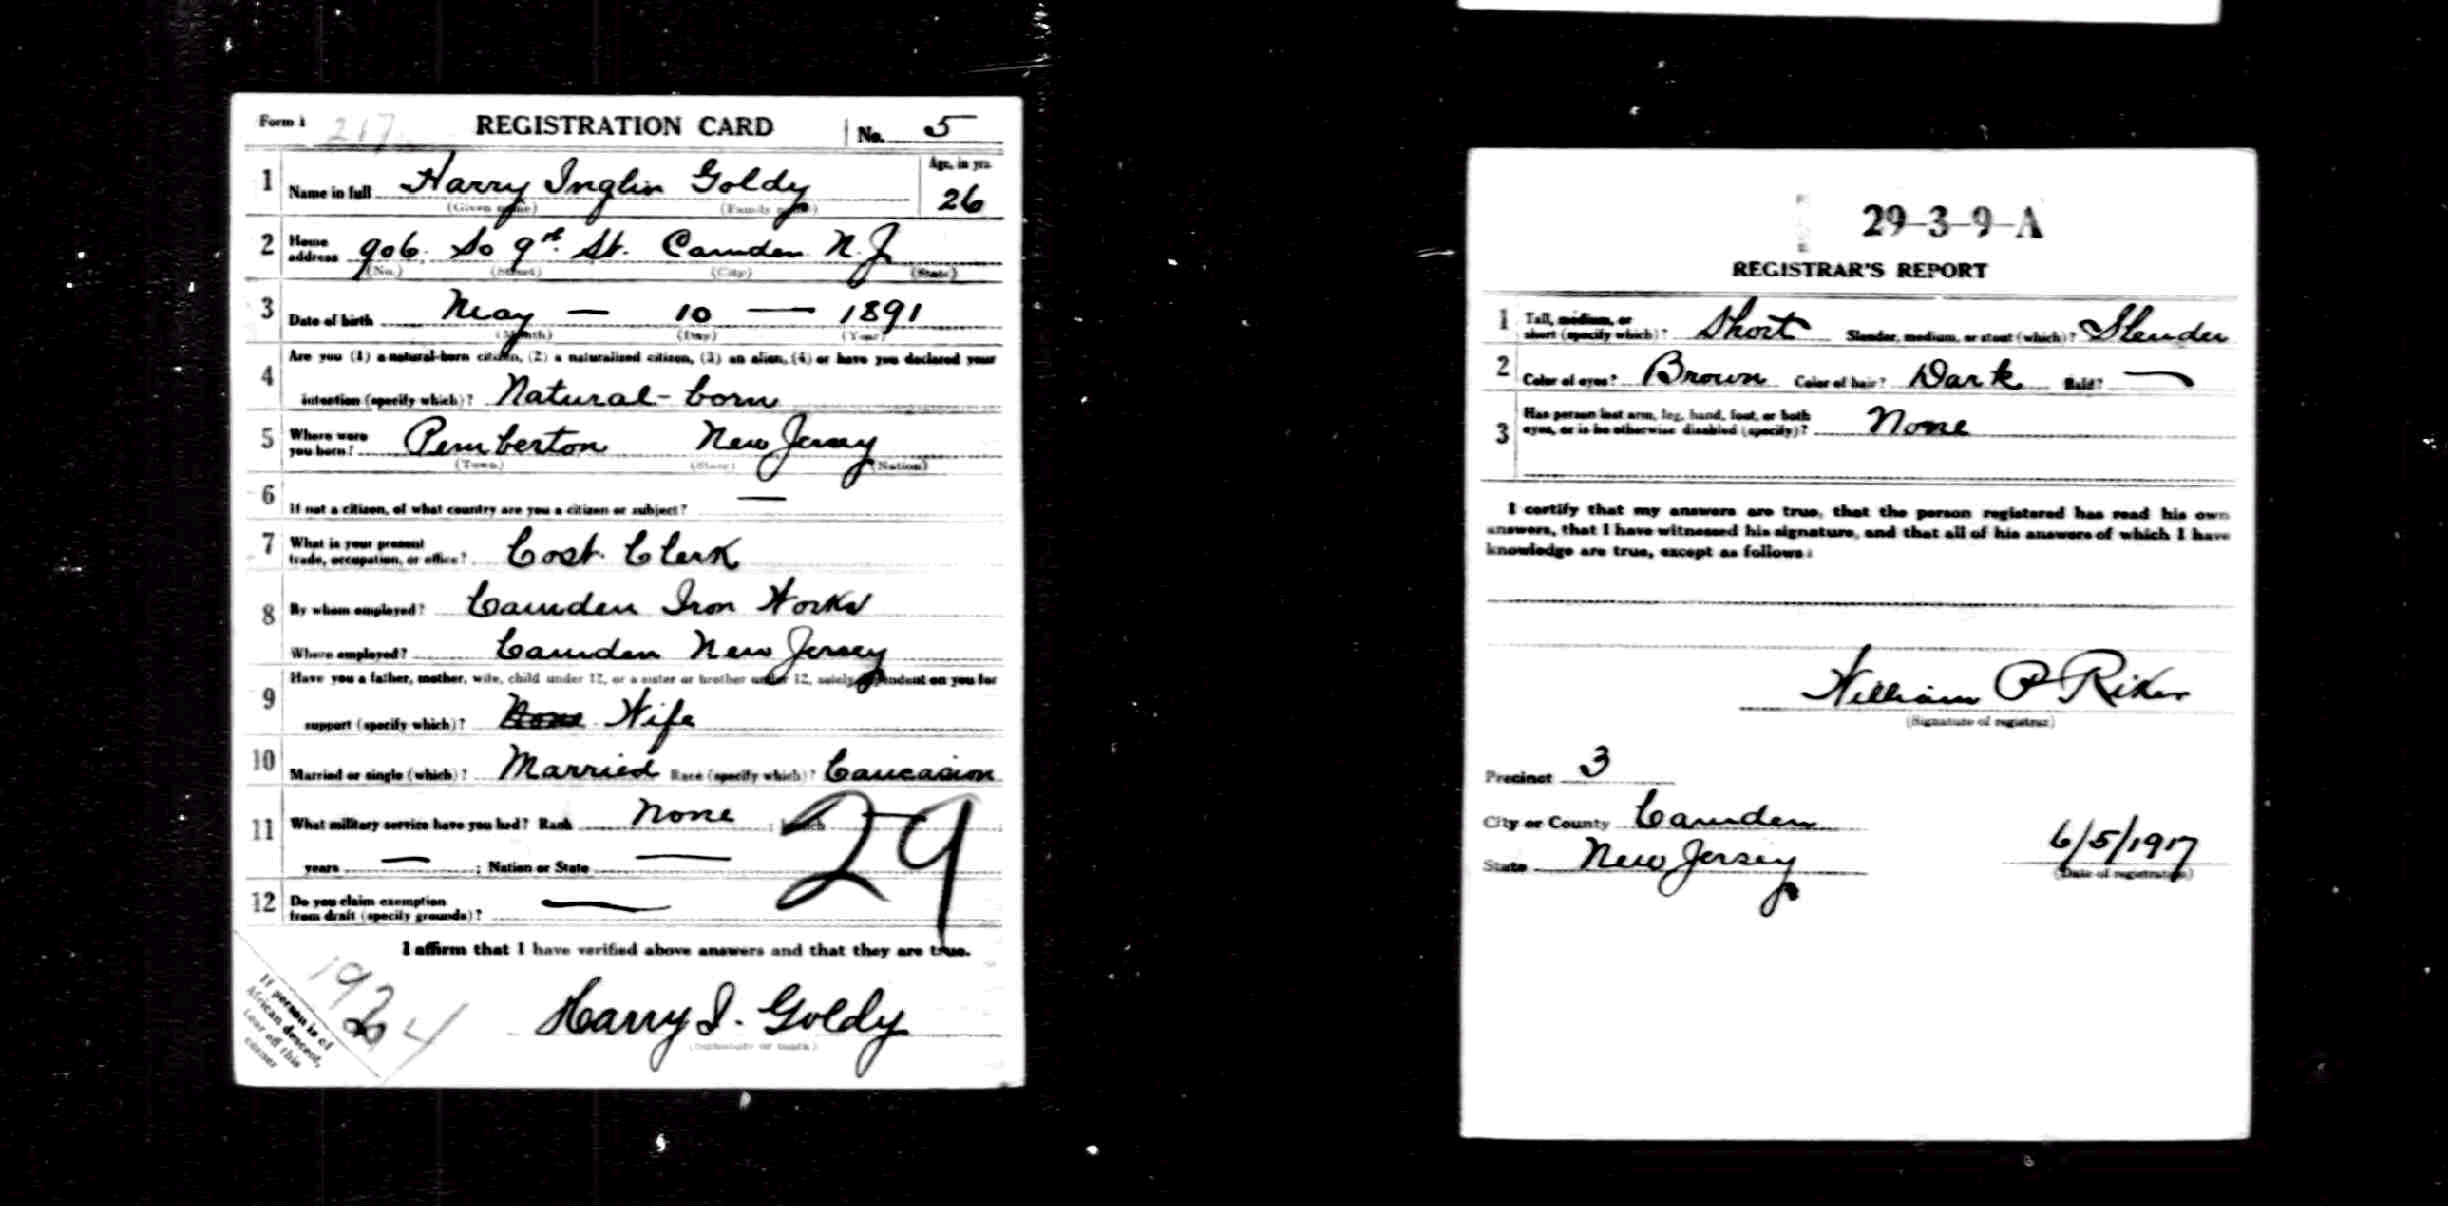 Form 1 217 REGISTRATION CARD No. 5
1 Name in full Harry Inglin Goldy Age, in yrs. 26
(Given name) (Family name)
2 Home address 906 So 9th St. Camden N.J
(No.) (Street) (City) (State)
3 Date of birth May — 10 — 1891
(Month) (Day) (Year)
4 Are you (1) a natural-born citizen, (2) a naturalized citizen, (3) an alien, (4) or have you declared your
intention (specify which)? Natural-born
5 Where were you born? Pemberton New Jersey
(Town) (State) (Nation)
6 If not a citizen, of what country are you a citizen or subject? —
7 What is your present trade, occupation, or office? Cost Clerk
8 By whom employed? Camden Iron Works
Where employed? Camden New Jersey
9 Have you a father, mother, wife, child under 12, or a sister or brother under 12, solely dependent on you for
support (specify which)? None Wife
10 Married or single (which)? Married Race (specify which)? Caucasion
11 What military service have you had? Rank None ; branch
29
years — ; Nation or State —
12 Do you claim exemption from draft (specify grounds)? —
I affirm that I have verified above answers and that they are true.
Harry I. Goldy
(Signature or mark)
If person is of
African descent,
tear off this
corner
29-3-9-A
REGISTRAR'S REPORT
1 Tall, medium, or short (specify which)? Short Slender, medium, or stout (which)? Slender
2 Color of eyes? Brown Color of hair? Dark Bald? —
3 Has person lost arm, leg, hand, foot, or both eyes, or is he otherwise disabled (specify)? None
I certify that my answers are true, that the person registered has read his own
answers, that I have witnessed his signature, and that all of his answers of which I have
knowledge are true, except as follows:
William P Riker
(Signature of registrar)
Precinct 3
City or County Camden
State New Jersey 6/5/1917
(Date of registration)